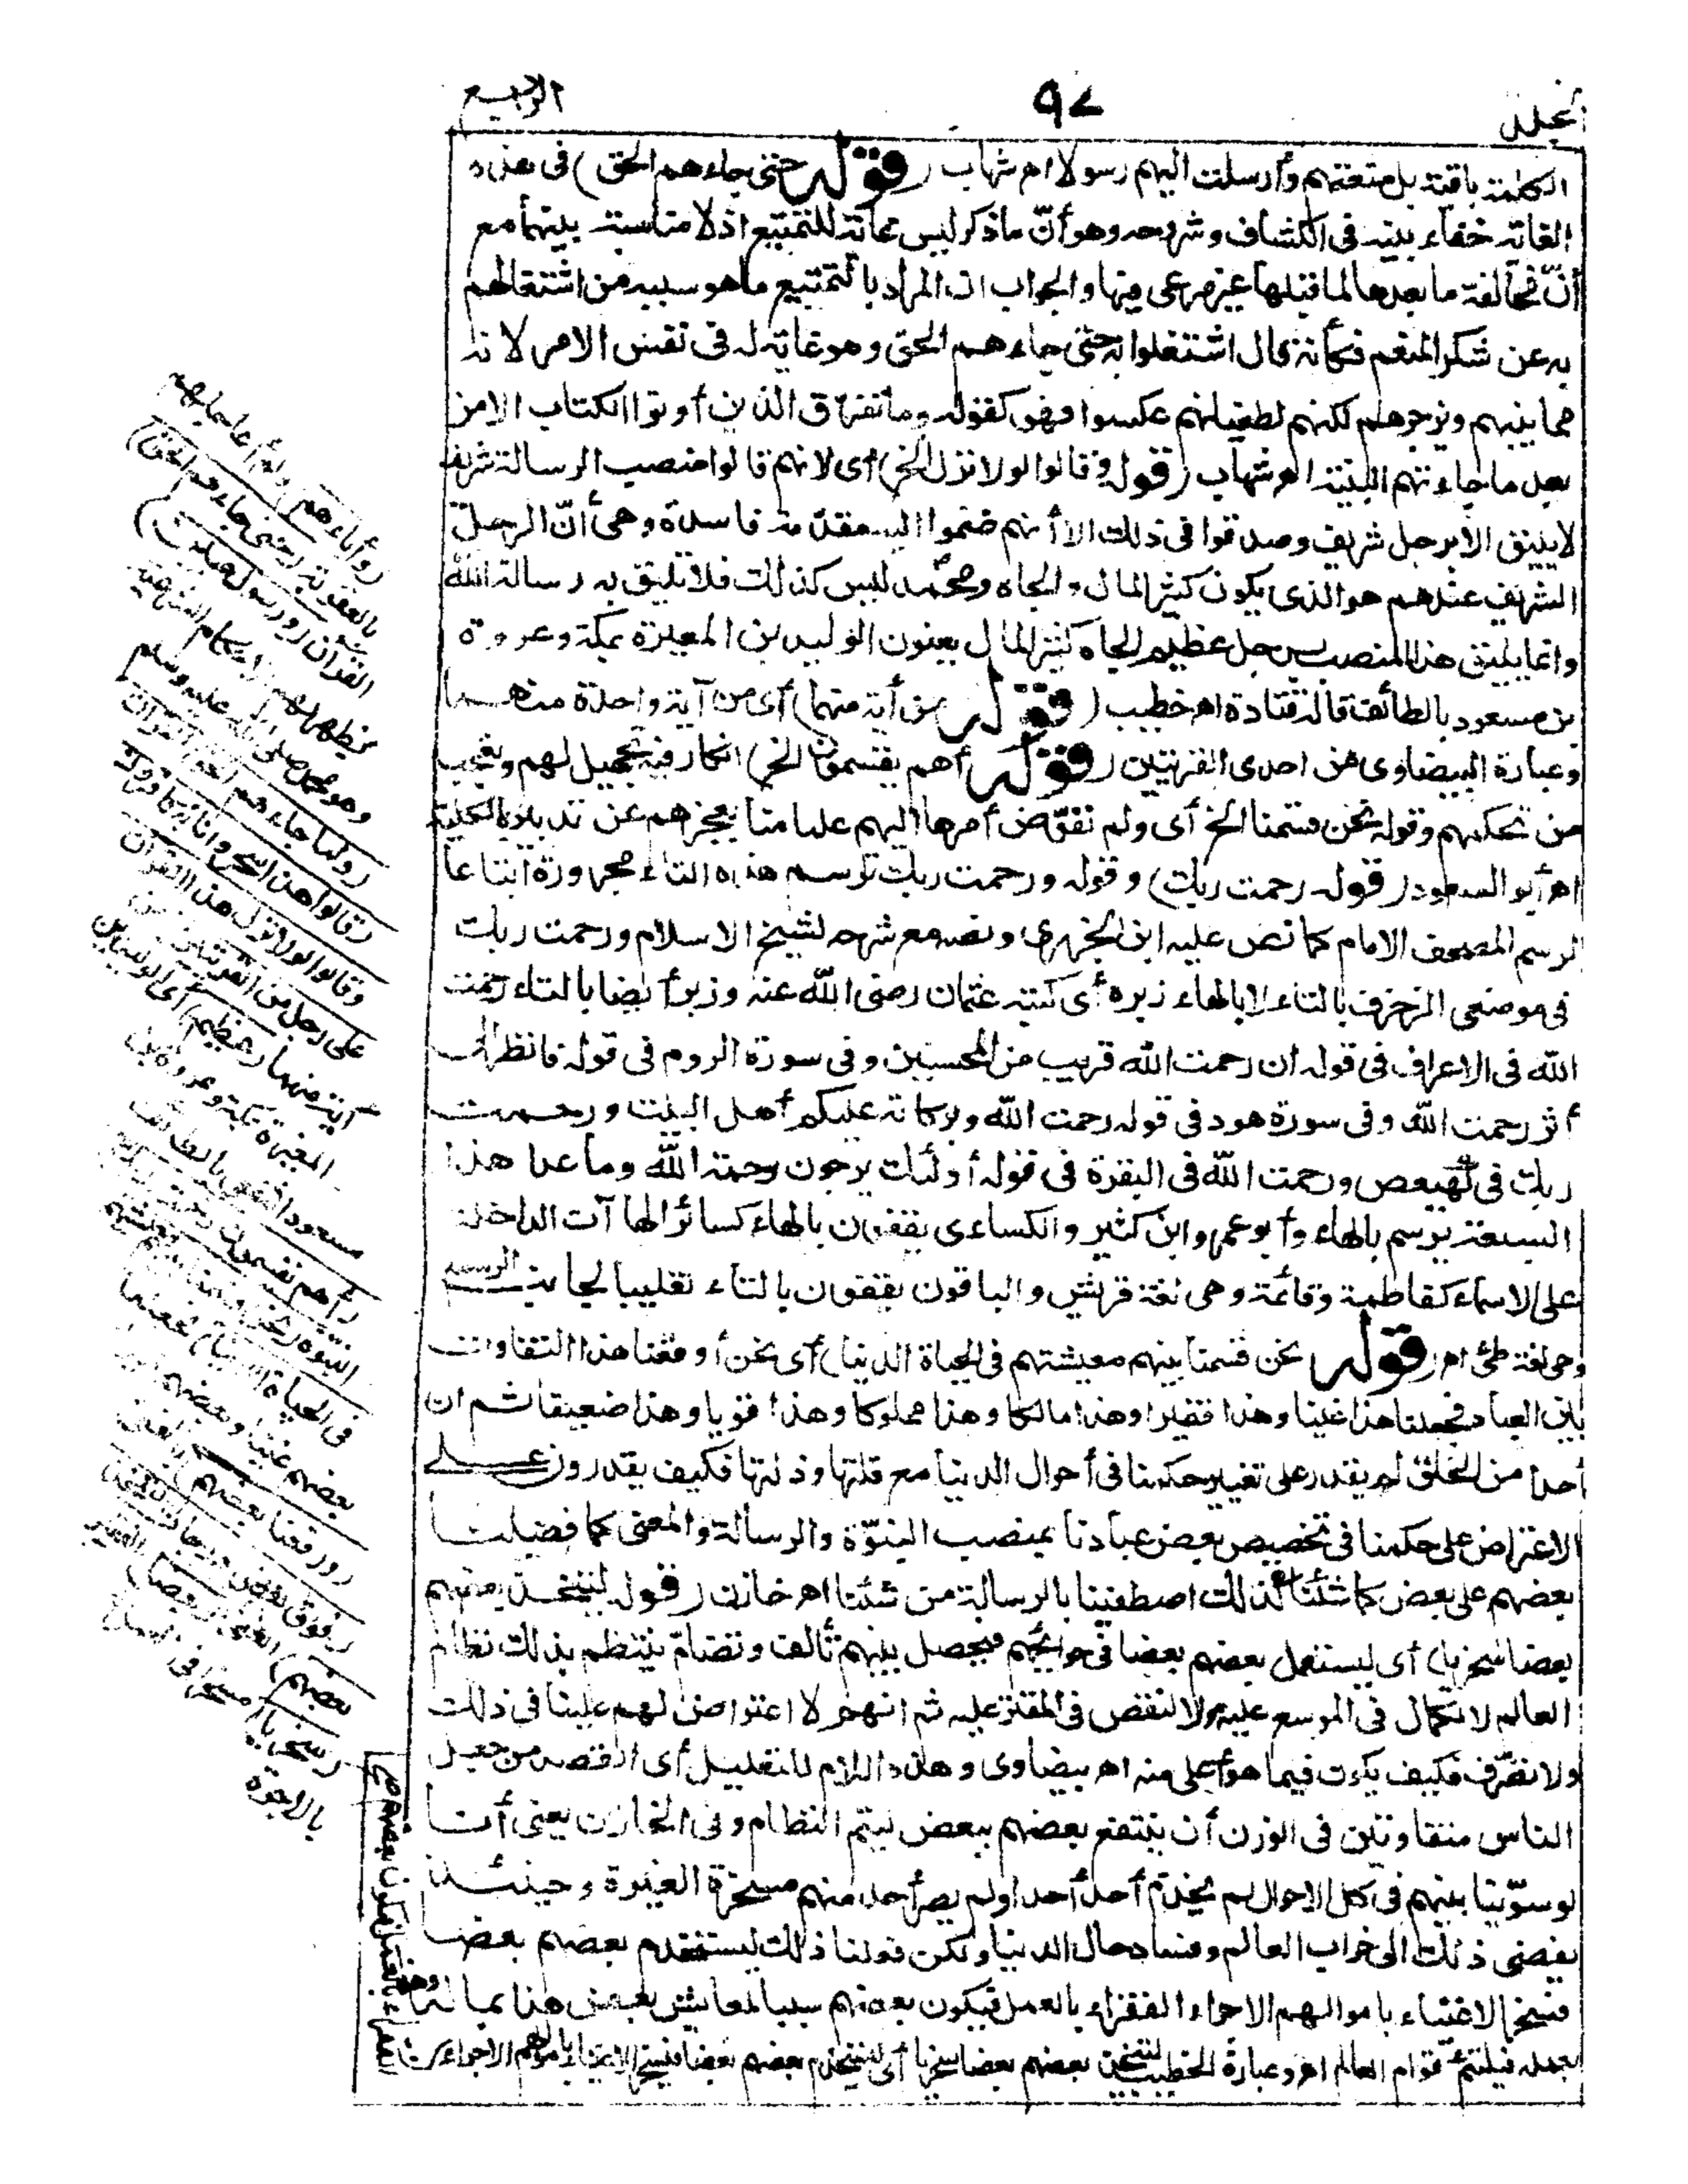 المجلد
٩٧
الرابع
الكلمة باقية بل متعتهم وأرسلت اليهم رسولا اه شهاب (قوله حتى جاءهم الحق) فى هذه
الغاية خفاء بينه فى الكشاف وشروحه وهو أنّ ما ذكر ليس غاية للتمتيع اذ لا مناسبة بينهما مع
أنّ مخالفة ما بعدها لما قبلها غير مرعى فيها والجواب ان المراد بالتمتيع ما هو سببه من اشتغالهم
به عن شكر المنعم فكأنه قال اشتغلوا به حتى جاءهم الحق وهو غاية له فى نفس الامر لانه
مما ينبههم ويزجرهم لكنهم لطغيانهم عكسوا فهو كقوله وما تفرّق الذين أوتوا الكتاب الا من
بعد ما جاءتهم البينة اه شهاب (قوله وقالوا لولا نزل الخ) أى لانهم قالوا منصب الرسالة شريف
لا يليق الا برجل شريف وصدقوا فى ذلك الا أنهم ضموا اليه مقدّمة فاسدة وهى أنّ الرجل
الشريف عندهم هو الذى يكون كثير المال والجاه ومحمد ليس كذلك فلا تليق به رسالة الله
وانما يليق هذا المنصب برجل عظيم الجاه كثير المال يعنون الوليد بن المغيرة بمكة وعروة
بن مسعود بالطائف قاله قتادة اه خطيب (قوله من أية منهما) أى من آية واحدة منهما
وعبارة البيضاوى من احدى القريتين (قوله أهم يقسمون الخ) انكار فيه تجهيل لهم وتعجيب
من تحكمهم وقوله نحن قسمنا الخ أى ولم نفوّض أمرها اليهم علما منا بعجزهم عن تدبيرها بالكلية
اه أبو السعود (قوله رحمت ربك) وقوله ورحمت ربك ترسم هذه التاء مجرورة اتباعا
لرسم المصحف الامام كما نص عليه ابن الجزرى ونصه مع شرحه لشيخ الاسلام ورحمت ربك
فى موضعى الزخرف بالتاء لا بالهاء زبره أى كتبه عثمان رضى الله عنه وزبر أيضا بالتاء رحمت
الله فى الاعراف فى قوله ان رحمت الله قريب من المحسنين وفى سورة الروم فى قوله فانظر الى
أثر رحمت الله وفى سورة هود فى قوله رحمت الله وبركاته عليكم أهل البيت ورحمت
ربك فى كهيعص ورحمت الله فى البقرة فى قوله أولئك يرجون رحمة الله وما عدا هذا
السبعة يرسم بالهاء وأبو عمرو وابن كثير والكساءى يقفون بالهاء كسائر الهاآت الداخلة
على الاسماء كفاطمة وقائمة وهى لغة قريش والباقون يقفون بالتاء تغليبا لجانب الرسم
وهى لغة طئ اه (قوله نحن قسمنا بينهم معيشتهم فى الحياة الدنيا) أى نحن أوقعنا هذا التفاوت
بين العباد فجعلنا هذا غنيا وهذا فقيرا وهذا مالكا وهذا مملوكا وهذا قويا وهذا ضعيفا ثم ان
أحدا من الخلق لم يقدر على تغيير حكمنا فى أحوال الدنيا مع قلتها وذلتها فكيف يقدرون على
الاعتراض على حكمنا فى تخصيص بعض عبادنا بمنصب النبوّة والرسالة والمعنى كما فضلنا
بعضهم على بعض كما شئنا كذلك اصطفينا بالرسالة من شئنا اه خازن (قوله ليتخذ بعضهم
بعضا سخريا) أى ليستعمل بعضهم بعضا فى حوائجهم فيحصل بينهم تألف وتضامّ ينتظم بذلك نظام
العالم لا لكمال فى الموسع عليه ولا لنقص فى المقتر عليه ثم انهم لا اعتراض لهم علينا فى ذلك
ولا تصرّف فكيف يكون فيما هو أعلى منه اه بيضاوى وهذه اللام للتعليل أى القصد من جعل
الناس متفاوتين فى الوزن أن ينتفع بعضهم ببعض ليتم النظام وفى الخازن يعنى أننا
لو سوّينا بينهم فى كل الاحوال لم يخدم أحد أحدا ولم يصر أحد منهم مسخرة لغيره وحينئذ
يفضى ذلك الى خراب العالم وفساد حال الدنيا ولكن فعلنا ذلك ليستخدم بعضهم بعضا
فتسخر الاغنياء بأموالهم الاجراء الفقراء بالعمل فيكون بعضهم سببا لمعاش بعض هذا بماله وهذا
بعمله فيلتئم قوام العالم اه وعبارة الخطيب ليتخذ بعضهم بعضا سخريا أى ليستخدم بعضهم بعضا فيسخر الاغنياء بأموالهم الاجراء
الفقراء بالعمل فيكون بعضهم
وأباءهم ولم أعاجلهم
بالعقوبة (حتى جاءهم الحق)
القرآن (ورسول مبين)
مظهر لهم الاحكام الشرعية
وهو محمد صلى الله عليه وسلم
(ولما جاءهم الحق) القرآن
(قالوا هذا سحر وانا به كافرون
وقالوا لولا نزل هذا القرآن
على رجل من القريتين) من
أية منهما (عظيم) أى الوليد بن
المغيرة بمكة وعروة بن
مسعود الثقفى بالطائف
(أهم يقسمون رحمة ربك)
النبوة (نحن قسمنا بينهم معيشتهم
فى الحياة الدنيا) فجعلنا
بعضهم غنيا وبعضهم
(ورفعنا بعضهم) بالغنى
(فوق بعض درجات ليتخذ
بعضهم) الغنى (بعضا) الفقير
(سخريا) مسخرا فى العمل
بالاجرة